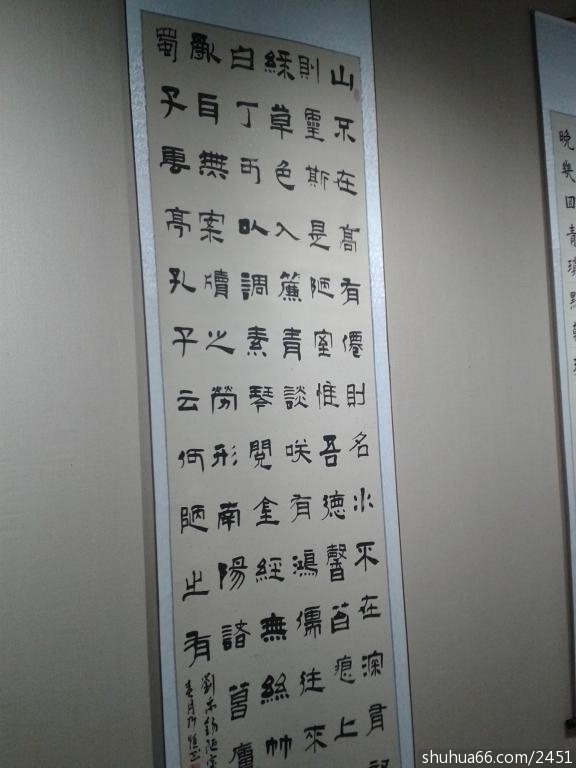 山不在髙有僊則名水不在深有
則靈斯是陋室惟吾德馨苔痕上
綠草色入簾青談咲有鴻儒往來
白丁可以調素琴閱金經無絲竹
亂耳無案牘之勞形南陽諸葛廬
蜀子雲亭孔子云何陋之有
劉禹錫陋室
晚
回青
shuhua66.com/2451